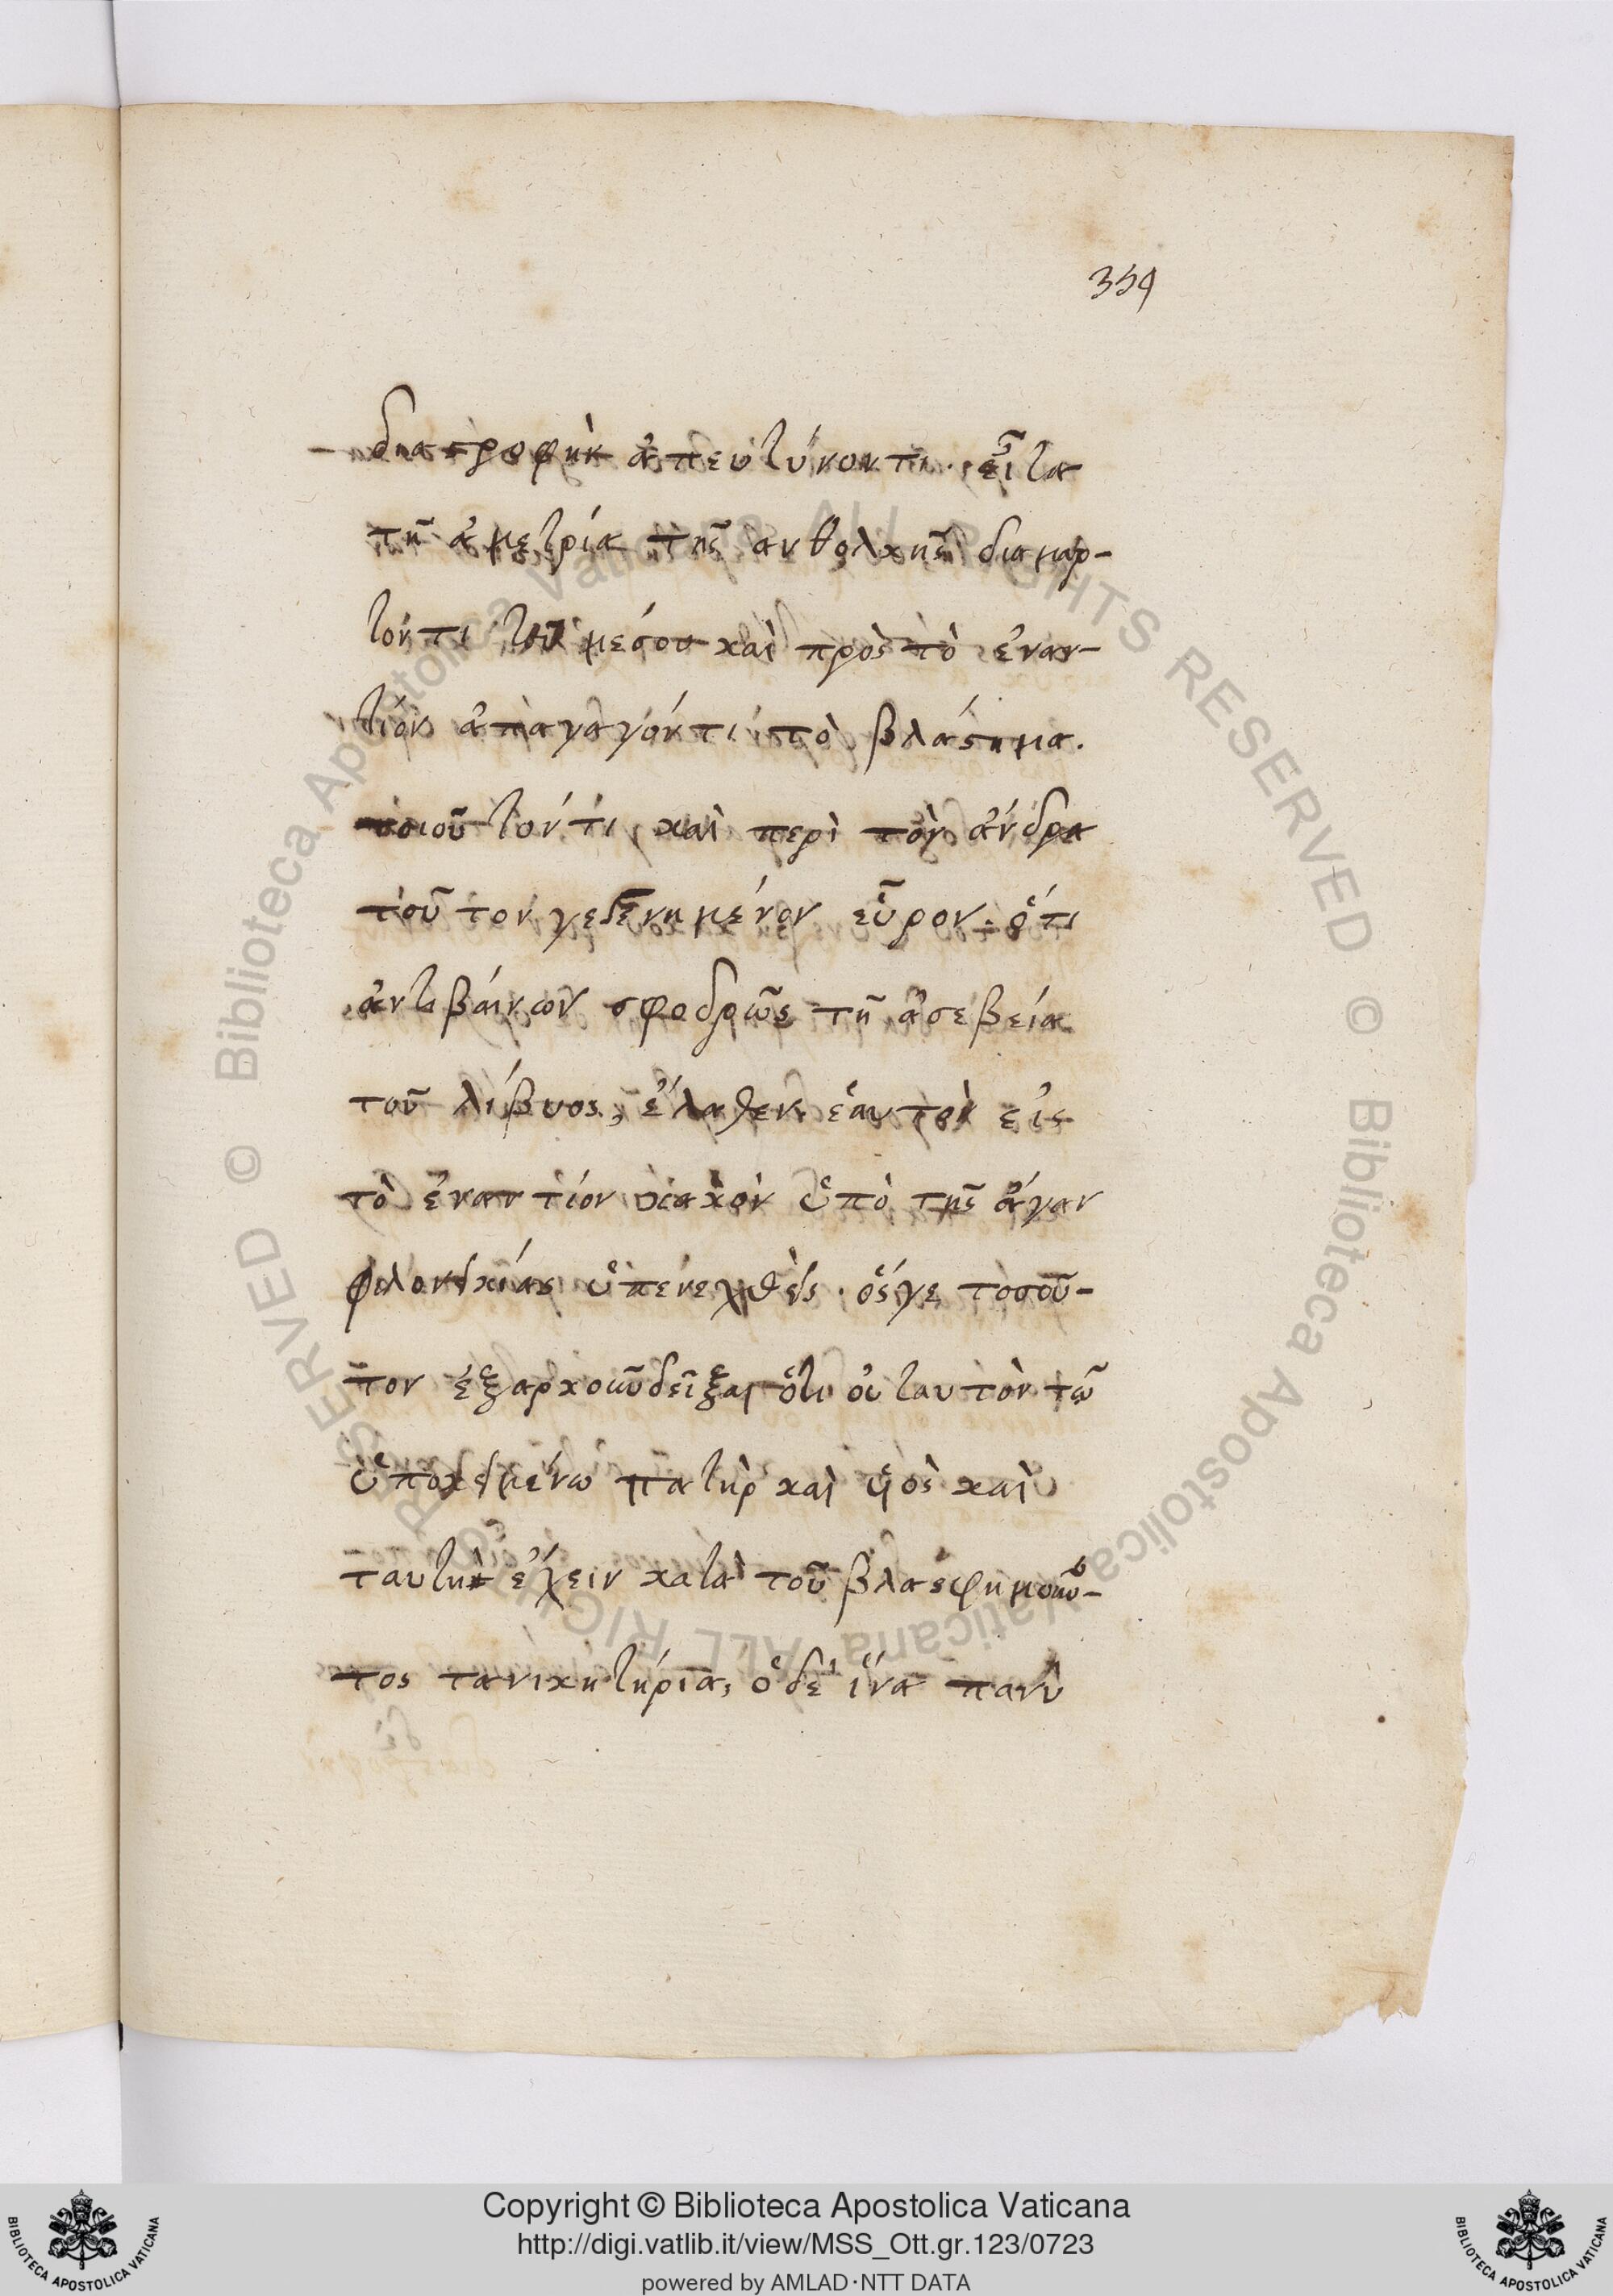 359
διαστροφὴν ἀπευτύνοντι· εἶτα
τῆ ἀμετρία τῆς ανθολκῆς διαμαρ-
τόντι τοῦ μέσου καὶ πρὸς τὸ ἐναν-
τίον ἀπαγαγόντι τὸ βλάστημα.
τοιοῦτόν τι καὶ περὶ τὸν ἄνδρα
τοῦτον γεγενημένον εὗρον· ὅτι
ἀντιβαίνων σφοδρῶς τῆ ἀσεβεία
τοῦ λίβυος, ἔλαθεν ἑαυτὸν εἰς
τὸ ἐναντίον κακὸν ὑπὸ τῆς ἄγαν
φιλονεικίας ὑπενεχθεὶς· ὅς γε τοσοῦ-
τον ἐξαρκοῦν δεῖξαι ὅτι οὐ ταυτὸν τῶ
ὑποκειμένω πατὴρ καὶ υἱὸς καὶ
ταύτην ἔχειν κατὰ τοῦ βλασφημοῦν-
τος τα νικητήρια, ὁ δὲ ἵνα πανὺ
Copyright © Biblioteca Apostolica Vaticana
http://digi.vatlib.it/view/MSS_Ott.gr.123/0723
powered by AMLAD·NTT DATA
BIBLIOTECA APOSTOLICA VATICANA
BIBLIOTECA APOSTOLICA VATICANA
© Biblioteca Apostolica Vaticana ALL RIGHTS RESERVED
© Biblioteca Apostolica Vaticana ALL RIGHTS RESERVED